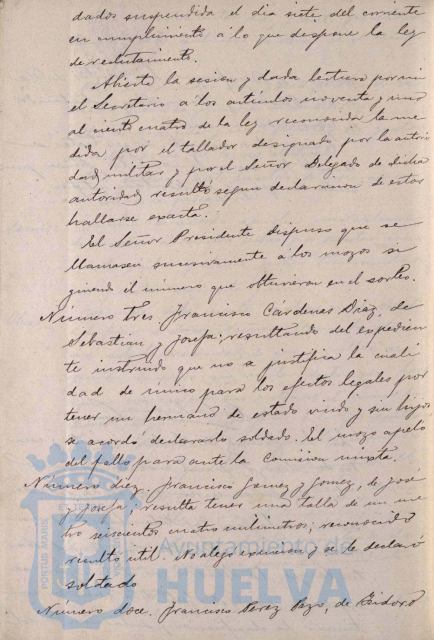 dados suspendida el dia siete del corriente
en cumplimiento á lo que dispone la ley
de reclutamiento.
Abierta la sesion y dada lectura por mi
el Secretario á los artículos noventa y uno
al ciento cuatro de la ley reconocida la me
dida por el tallador designado por la autori
dad militar y por el Señor Delegado de dicha
autoridad, resultó segun declaracion de estos
hallarse exacta.
El Señor Presidente dispuso que se
llamasen sucesivamente á los mozos si
guiendo el número que obtuvieron en el sorteo.
Número tres, Francisco Cárdenas Diaz, de
Sebastian y Josefa; resultando del expedien
te instruido que no se justifica la cuali
dad de único para los efectos legales por
tener un hermano de estado viudo y sin hijos
se acordó declararlo soldado. El mozo apeló
del fallo para ante la Comision mixta.
Número diez, Francisco Gomez y Gomez, de José
y Josefa, resulta tener una talla de un me
tro seiscientos cuatro milímetros; reconocido
resultó útil. No alegó y se le declaró
soldado
Número doce. Francisco Perez Pazo, de Isidoro
PORTUS MARIS
Ayuntamiento de
HUELVA